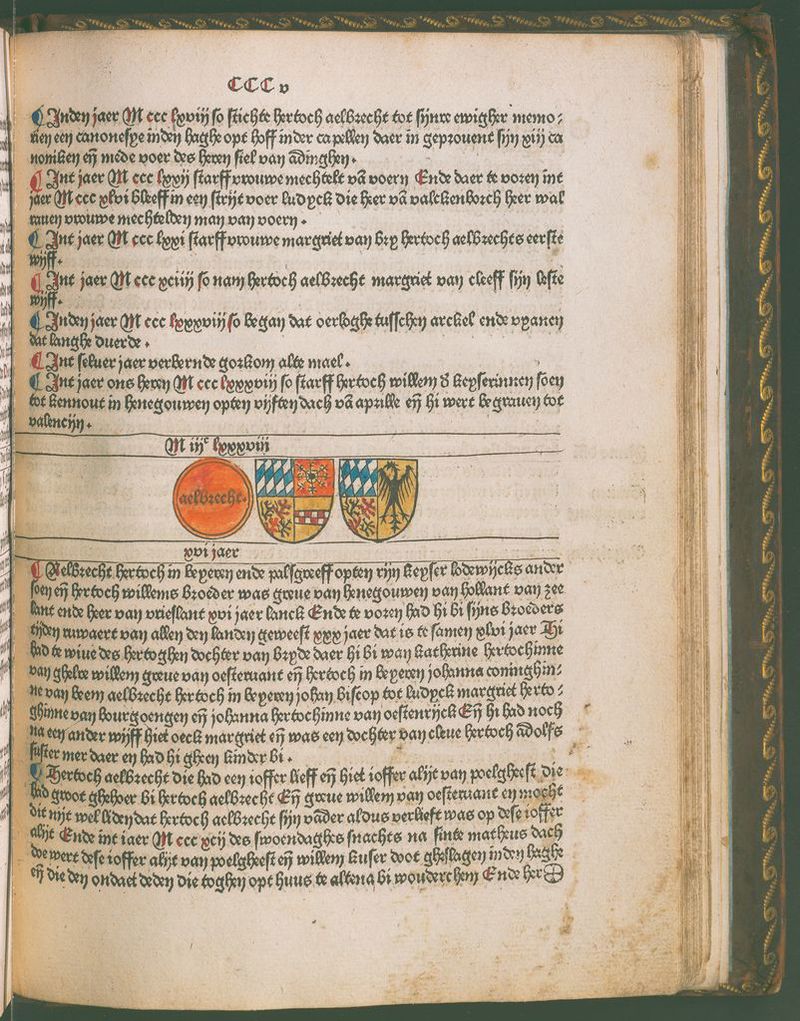 CCC v
¶ Inden jaer M ccc lxviij so stichte hertoch aelbrecht tot sijnre ewigher memo⸗
rien een canonesye inden haghe opt hoff inder capellen daer in geprouent sijn xiij ca
noniken eñ mede voer des heren siel van ādinghen.
¶ Int jaer M ccc lxxij starff vrouwe mechtelt vā voern Ende daer te voren int
jaer M ccc xlvi bleeff in een strijt voer ludyck die heer vā valckenborch heer wal
rauen vrouwe mechtelden man van voern.
¶ Int jaer M ccc lxxi starff vrouwe margriet van bry hertoch aelbrechts eerste
wijff.
¶ Int jaer M ccc xciiij so nam hertoch aelbrecht margriet van cleeff sijn leste
wijff.
¶ Inden jaer M ccc lxxxviij so began dat oerloghe tusschen arckel ende vyanen
dat langhe duerde.
¶ Int seluer jaer verbernde gorkom alte mael.
¶ Int jaer ons heren M ccc lxxxviij so starff hertoch willem d' keyserinnen soen
tot kennout in henegouwen opten vijftendach vā aprille eñ hi wert begrauen tot
valencijn.
M iijᶜ lxxxviii
aelbrecht.
xvi jaer
¶ Aelbrecht hertoch in beyeren ende palsgreeff opten rijn keyser lodewijcks ander
soen eñ hertoch willems broeder was greue van henegouwen van hollant van zee
lant ende heer van vrieslant xvi jaer lanck Ende te voren had hi bi sijns broeders
tijden ruwaert van allen den landen geweest xxx jaer dat is te samen xlvi jaer Hi
had te wiue des hertoghen dochter van bryde daer hi bi wan katherine hertochinne
van ghelre willem greue van oesteruant eñ hertoch in beyeren johanna coninghin⸗
ne van beem aelbrecht hertoch in beyeren johan biscop tot ludyck margriet herto⸗
ghinne van bourgoengen eñ johanna hertochinne van oestenrijck Eñ hi had noch
na een ander wijff hiet oeck margriet eñ was een dochter van cleue hertoch ādolfs
suster mer daer en had hi gheen kinder bi.
¶ Hertoch aelbrecht die had een ioffer lieff eñ hiet ioffer alijt van poelgheest die
had groot ghehoer bi hertoch aelbrecht Eñ greue willem van oesteruant en mocht
dit nijt wel liden dat hertoch aelbrecht sijn vāder aldus verlieft was op dese ioffer
alijt Ende int iaer M ccc xcij des swoendaghes snachts na sinte matheus dach
doe wert dese ioffer alijt van poelgheest eñ willem kuser doot gheslagen inden haghe
eñ die den ondaet deden die toghen opt huus te altena bi wouderchem Ende her